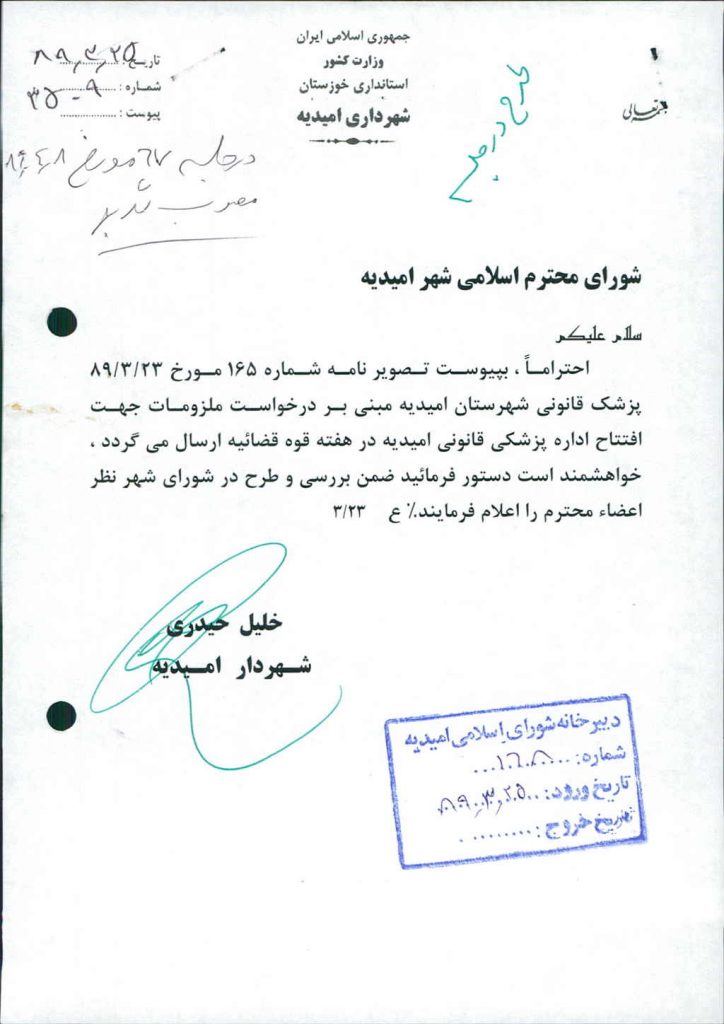 بسمه تعالی
جمهوری اسلامی ایران
وزارت کشور
استانداری خوزستان
شهرداری امیدیه
تاریخ : ۸۹,۳,۲۵
شماره :
پیوست :
طرح در جلسه
در جلسه ۶۷ مورخ
مصوب
شورای محترم اسلامی شهر امیدیه
سلام علیکم
احتراماً ، بپیوست تصویر نامه شماره ۱۶۵ مورخ ۸۹/۳/۲۳
پزشک قانونی شهرستان امیدیه مبنی بر درخواست ملزومات جهت
افتتاح اداره پزشکی قانونی امیدیه در هفته قوه قضائیه ارسال می گردد ،
خواهشمند است دستور فرمائید ضمن بررسی و طرح در شورای شهر نظر
اعضاء محترم را اعلام فرمایند.٪ ع ۳/۲۳
خلیل حیدری
شهردار امیدیه
دبیرخانه شورای اسلامی امیدیه
شماره:
تاریخ ورود: ۸۹,۳,۲۵
تاریخ خروج :